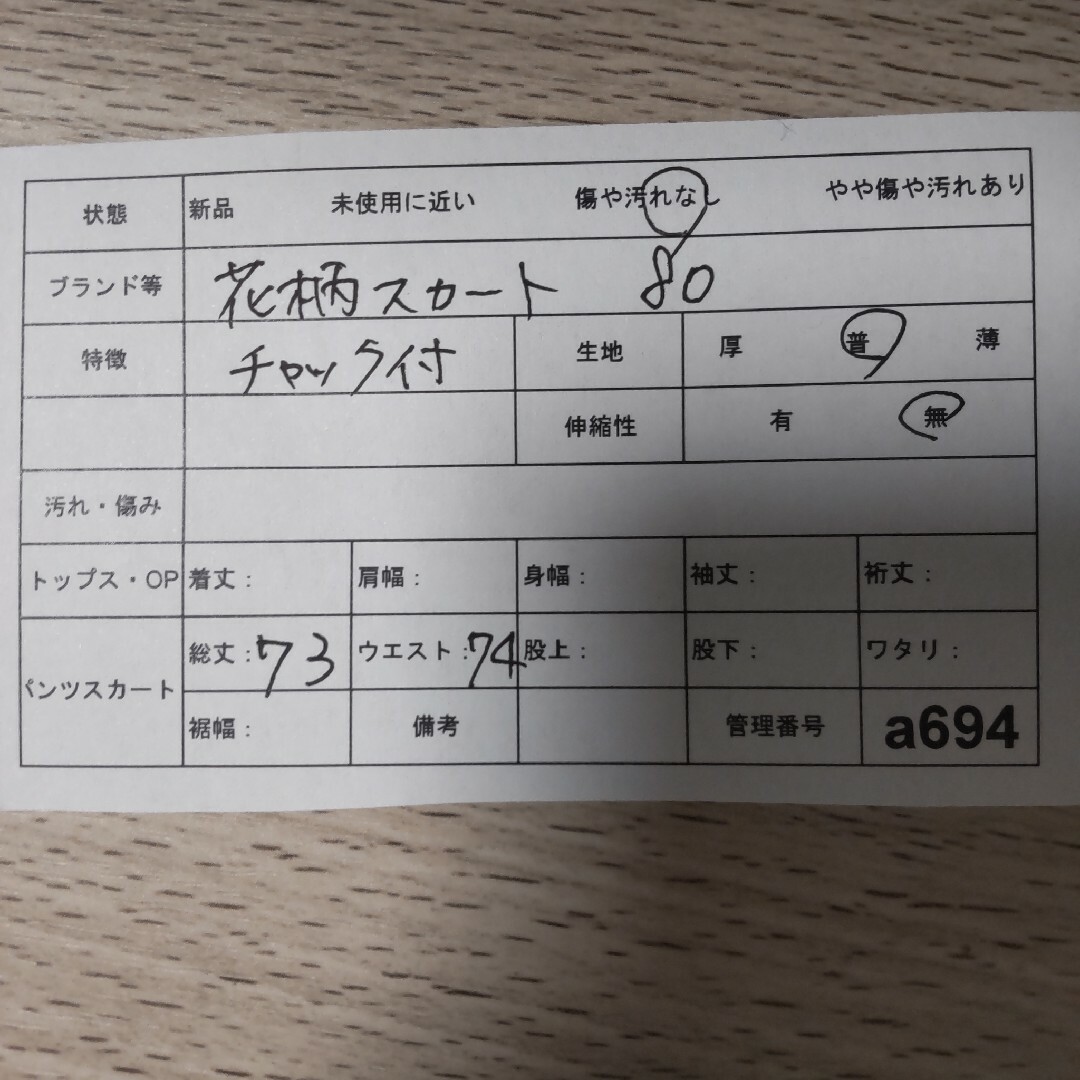 状態 新品 未使用に近い 傷や汚れなし やや傷や汚れあり
ブランド等 花柄スカート 80
特徴 チャック付 生地 厚 普 薄
伸縮性 有 無
汚れ・傷み
トップス・OP 着丈: 肩幅: 身幅: 袖丈: 裄丈:
パンツスカート 総丈:73 ウエスト:74 股上: 股下: ワタリ:
裾幅: 備考 管理番号 a694